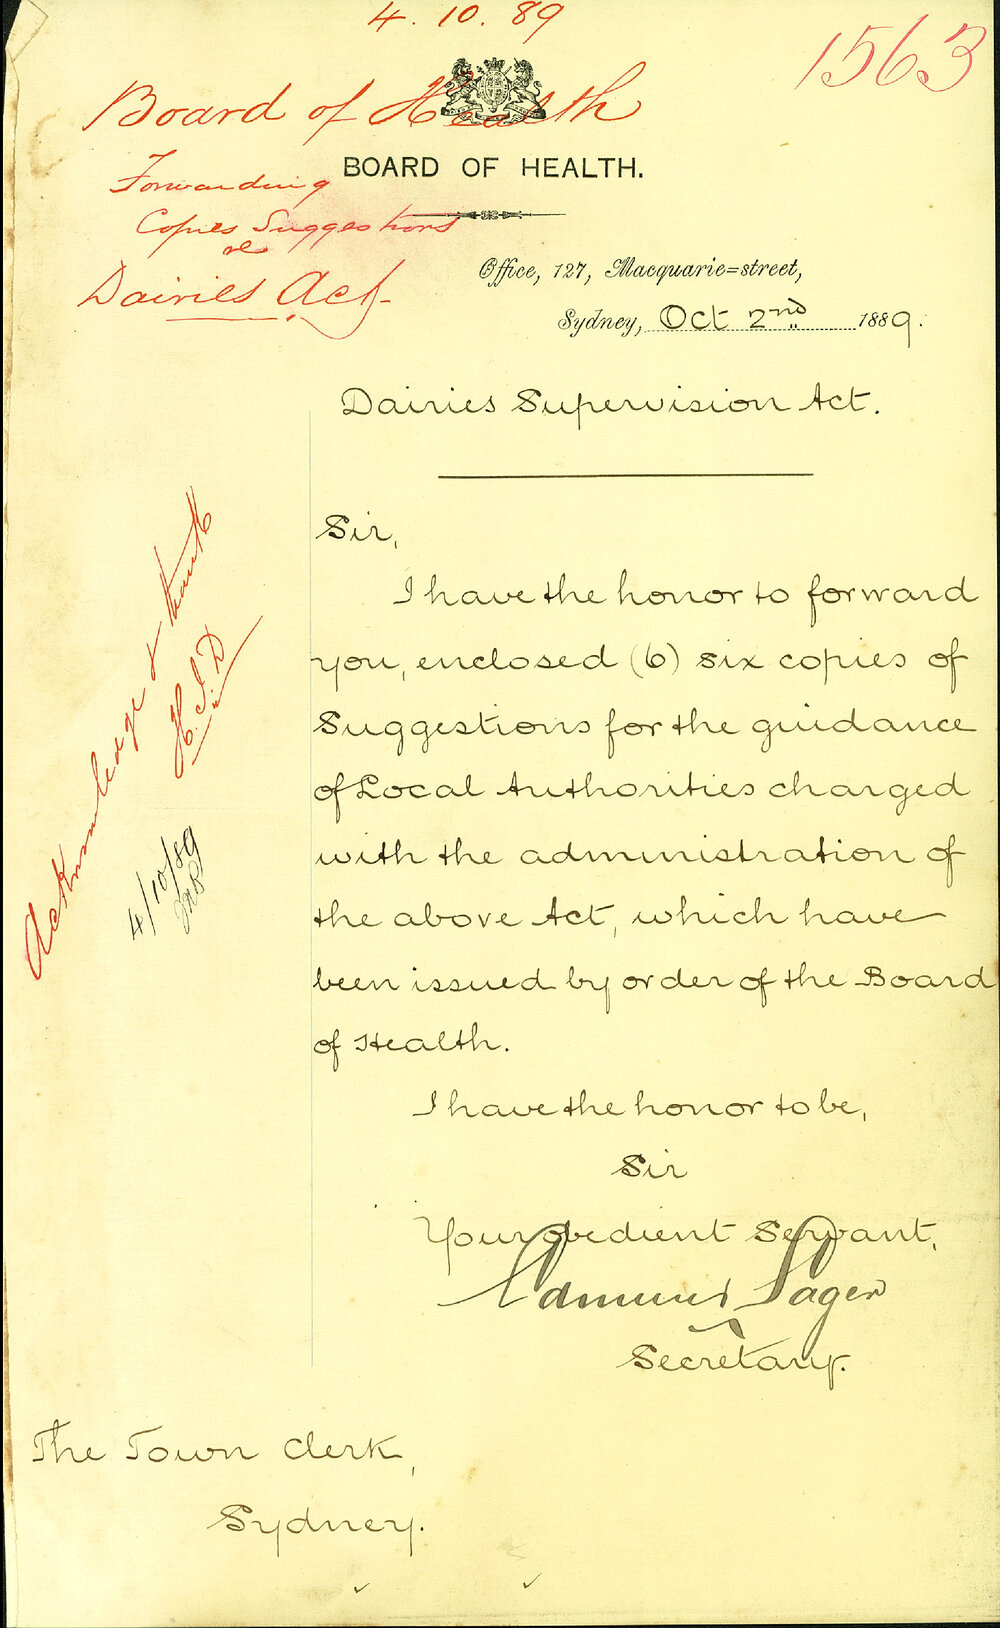 4.10.89
1563
Board of Health
BOARD OF HEALTH.
Forwarding
Copies Suggestions
re
Dairies Act
Office, 127, Macquarie=street,
Sydney, Oct 2nd 1889.
Dairies Supervision Act.
Sir,
I have the honor to forward
you, enclosed (6) six copies of
Suggestions for the guidance
of Local Authorities charged
with the administration of
the above Act, which have
been issued by order of the Board
of Health.
I have the honor to be,
Sir
Your obedient Servant,
Edmund Sager
Secretary.
Acknowledge & thank
H.J.D
4/10/89
The Town Clerk,
Sydney.